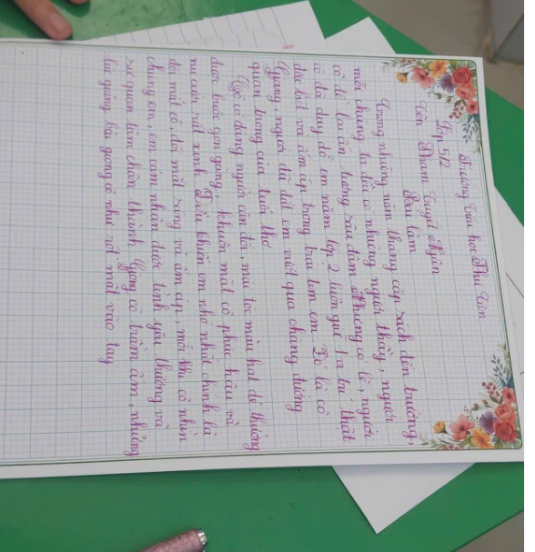 Trường Tiểu học Phú Tâm
Lớp 5/2
Tên Phạm Tuyết Ngân
Bài làm
Trong những năm tháng cắp sách đến trường,
mỗi chúng ta đều có những người thầy, người
cô để lại ấn tượng sâu đậm. Nhưng có lẽ, người
cô đã dạy dỗ em năm lớp 2 luôn giữ vị trí thật
đặc biệt và ấm áp trong trái tim em. Đó là cô
Giang, người đã dắt em vượt qua chặng đường
quan trọng của tuổi thơ.
Cô có dáng người cân đối, mái tóc màu hạt dẻ thường
được buộc gọn gàng, khuôn mặt cô phúc hậu và
nụ cười rất xinh. Điều khiến em nhớ nhất chính là
đôi mắt cô, đôi mắt sáng và ấm áp, mỗi khi cô nhìn
chúng em, em cảm nhận được tình yêu thương và
sự quan tâm chân thành. Giọng cô trầm ấm, những
lúc giảng bài giọng cô như rót mật vào tay